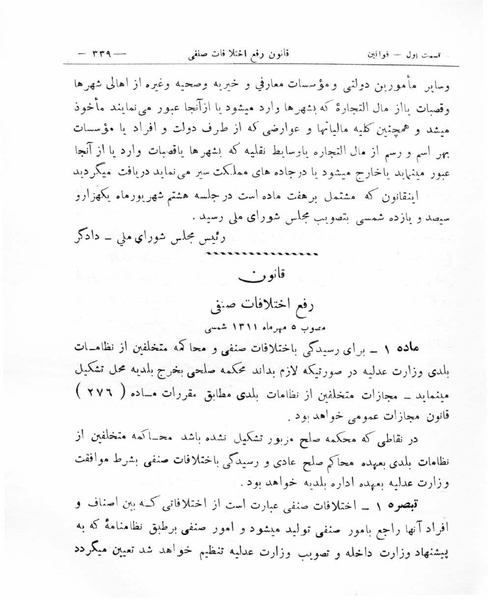 قسمت اول — قوانین
قانون رفع اختلافات صنفی
— ۳۳۹ —
وسایر مأمورین دولتی و مؤسسات معارفی و خیریه وصحیه وغیره از اهالی شهرها
وقصبات یااز مال التجارهٔ که بشهرها وارد میشود یا ازآنجا عبور مینمایند مأخوذ
میشد و همچنین کلیه مالیاتها و عوارضی که از طرف دولت و افراد یا مؤسسات
بهر اسم و رسم از مال التجاره یاوسایط نقلیه که بشهرها یاقصبات وارد یا از آنجا
عبور مینماید یاخارج میشود یا درجاده های مملکت سیر می نماید دریافت میگردید
اینقانون که مشتمل برهفت ماده است در جلسه هشتم شهریورماه یکهزارو
سیصد و یازده شمسی بتصویب مجلس شورای ملی رسید .
رئیس مجلس شورای ملی ــ دادگر
قانون
رفع اختلافات صنفی
مصوب ۵ مهرماه ۱۳۱۱ شمسی
ماده ۱ ــ برای رسیدگی باختلافات صنفی و محاکمه متخلفین از نظامات
بلدی وزارت عدلیه در صورتیکه لازم بداند محکمه صلحی بخرج بلدیه محل تشکیل
مینماید ــ مجازات متخلفین از نظامات بلدی مطابق مقررات ماده ( ۲۷۶ )
قانون مجازات عمومی خواهد بود .
در نقاطی که محکمه صلح مزبور تشکیل نشده باشد محاکمه متخلفین از
نظامات بلدی بعهده محاکم صلح عادی و رسیدگی باختلافات صنفی بشرط موافقت
وزارت عدلیه بعهده اداره بلدیه خواهد بود .
تبصره ۱ ــ اختلافات صنفی عبارت است از اختلافاتی که بین اصناف و
افراد آنها راجع بامور صنفی تولید میشود و امور صنفی برطبق نظامنامهٔ که به
پیشنهاد وزارت داخله و تصویب وزارت عدلیه تنظیم خواهد شد تعیین میگردد